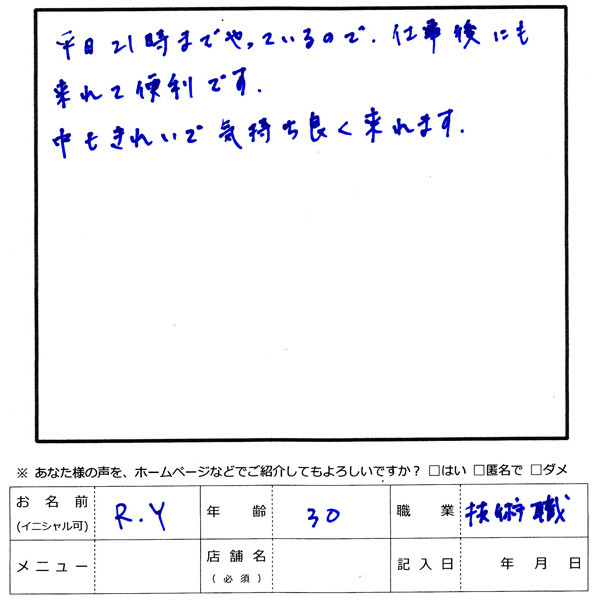 平日21時までやっているので、仕事後にも
来れて便利です。
中もきれいで気持ち良く来れます。
※ あなた様の声を、ホームページなどでご紹介してもよろしいですか？ □はい □匿名で □ダメ
お名前 (イニシャル可) R.Y 年齢 30 職業 技術職
メニュー 店舗名 (必須) 記入日 年 月 日